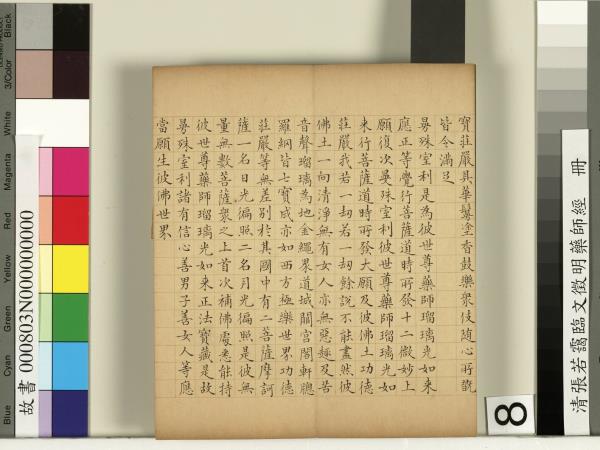 清張若靄臨文徵明藥師經　冊
寶莊嚴具華鬘塗香鼓樂眾伎隨心所翫
皆令滿足
曼殊室利是為彼世尊藥師瑠璃光如來
應正等覺行菩薩道時所發十二微妙上
願復次曼殊室利彼世尊藥師瑠璃光如
來行菩薩道時所發大願及彼佛土功德
莊嚴我若一劫若一劫餘說不能盡然彼
佛土一向清淨無有女人亦無惡趣及苦
音聲瑠璃為地金繩界道城闕宮閣軒牕
羅網皆七寶成亦如西方極樂世界功德
莊嚴等無差別於其國中有二菩薩摩訶
薩一名日光徧照二名月光徧照是彼無
量無數菩薩眾之上首次補佛處悉能持
彼世尊藥師瑠璃光如來正法寶藏是故
曼殊室利諸有信心善男子善女人等應
當願生彼佛世界
8
故書 000803N000000000
Blue Cyan Green Yellow Red Magenta White 3/Color Black